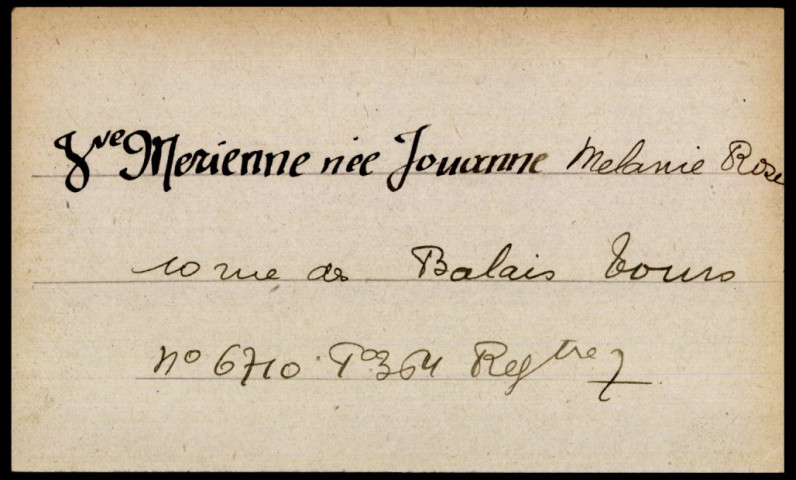 Vve Merienne née Jouanne Melanie Rose
10 rue des Balais Tours
No 6710 Fo 364 Regtre 7